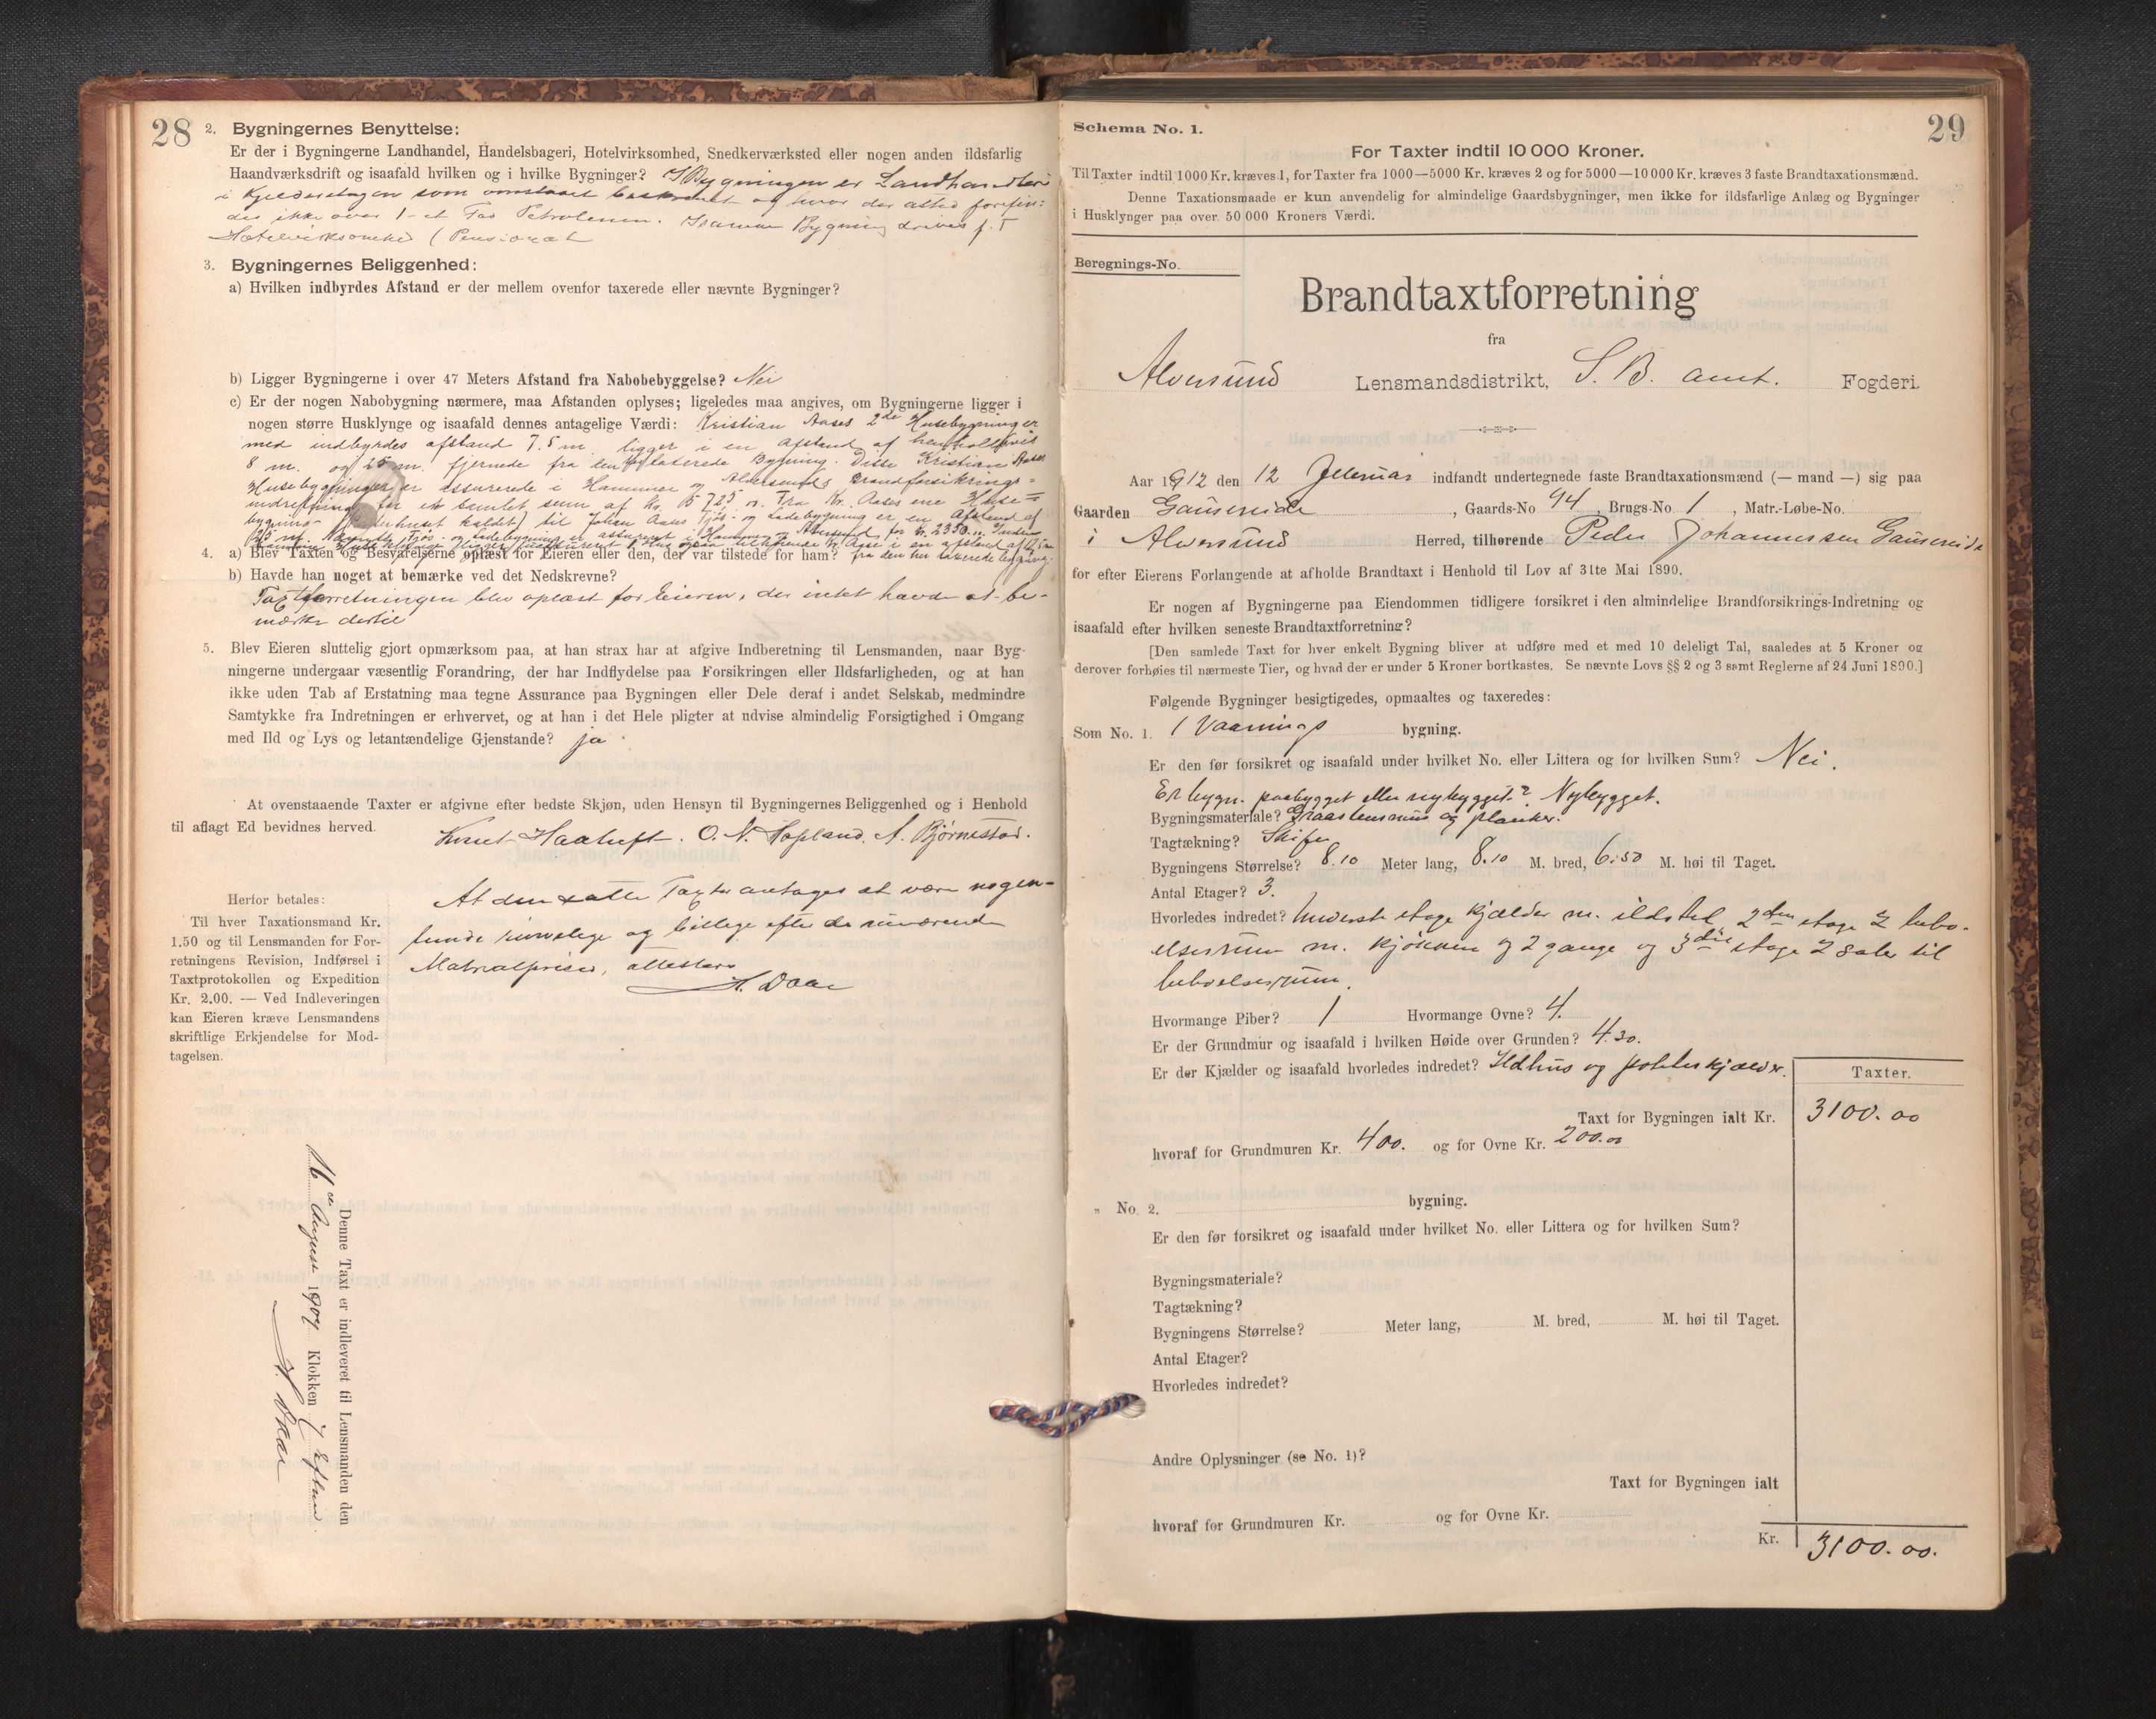 28
2. Bygningernes Benyttelse:
Er der i Bygningerne Landhandel, Handelsbageri, Hotelvirksomhed, Snedkerværksted eller nogen anden ildsfarlig
Haandværksdrift og isaafald hvilken og i hvilke Bygninger? I Bygningen er Landhandleri
i Kjelderetagen som omstaaet beskrevet og hvor der altid forefin-
des ikke over 1 et Fad Petroleum. I samme Bygning drives f. T
Hotelvirksomhed (Pensionat
3. Bygningernes Beliggenhed:
a) Hvilken indbyrdes Afstand er der mellem ovenfor taxerede eller nævnte Bygninger?
b) Ligger Bygningerne i over 47 Meters Afstand fra Nabobebyggelse? Nei
c) Er der nogen Nabobygning nærmere, maa Afstanden oplyses; ligeledes maa angives, om Bygningerne ligger i
nogen større Husklynge og isaafald dennes antagelige Værdi: Kristian Aases 2de Husebygninger
med indbyrdes afstand 7.5 m ligger i en afstand af henholdsvis
8 m. og 25 m. fjernede fra den taxerede Bygning. Disse Kristian Aases
Husebygninger er assurerede i Hammer og Alversunds Brandforsikrings-
indretning for en samlet sum af Kr. 5725 Fra Kr. Aases ene Huse-
bygning kaldet) til Johan Aases Fjøs- og Ladebygning er en Afstand af
25 m Fjøs- og Ladebygning er assureret i Hammer og Alversund for Kr. 2350.
fra den her taxerede bygning.
4. a) Blev Taxten og Besvarelserne oplæst for Eieren eller den, der var tilstede for ham?
b) Havde han noget at bemærke ved det Nedskrevne?
Taxtforretningen blev oplæst for Eieren, der intet havde at be-
mærke dertil
5. Blev Eieren sluttelig gjort opmærksom paa, at han strax har at afgive Indberetning til Lensmanden, naar Byg-
ningerne undergaar væsentlig Forandring, der har Indflydelse paa Forsikringen eller Ildsfarligheden, og at han
ikke uden Tab af Erstatning maa tegne Assurance paa Bygningen eller Dele deraf i andet Selskab, medmindre
Samtykke fra Indretningen er erhvervet, og at han i det Hele pligter at udvise almindelig Forsigtighed i Omgang
med Ild og Lys og letantændelige Gjenstande? ja
At ovenstaaende Taxter er afgivne efter bedste Skjøn, uden Hensyn til Bygningernes Beliggenhed og i Henhold
til aflagt Ed bevidnes herved.
Knut Haatuft. O. N. Hopland. A. Bjørnestad.
Herfor betales:
Til hver Taxationsmand Kr.
1.50 og til Lensmanden for For-
retningens Revision, Indførsel i
Taxtprotokollen og Expedition
Kr. 2.00. — Ved Indleveringen
kan Eieren kræve Lensmandens
skriftlige Erkjendelse for Mod-
tagelsen.
At den satte Taxter antages at være nogen-
lunde rimelige og billige efter de nuværende
Matrialpriser, attesteres
A. Daae
Denne Taxt er indleveret til Lensmanden den
16de August 1909 Klokken 7 Efterm.
A. Daae
29
Schema No. 1.
For Taxter indtil 10 000 Kroner.
Til Taxter indtil 1000 Kr. kræves 1, for Taxter fra 1000—5000 Kr. kræves 2 og for 5000—10 000 Kr. kræves 3 faste Brandtaxationsmænd.
Denne Taxationsmaade er kun anvendelig for almindelige Gaardsbygninger, men ikke for ildsfarlige Anlæg og Bygninger
i Husklynger paa over 50 000 Kroners Værdi.
Beregnings-No.
Brandtaxtforretning
fra
Alversund Lensmandsdistrikt, S. B. amt. Fogderi.
Aar 1912 den 12 Februar indfandt undertegnede faste Brandtaxationsmænd (— mand —) sig paa
Gaarden Gausereide , Gaards-No 44 , Brugs-No. 1 , Matr.-Løbe-No.
i Alversund Herred, tilhørende Peder Johannessen Gausereide
for efter Eierens Forlangende at afholde Brandtaxt i Henhold til Lov af 31te Mai 1890.
Er nogen af Bygningerne paa Eiendommen tidligere forsikret i den almindelige Brandforsikrings-Indretning og
isaafald efter hvilken seneste Brandtaxtforretning?
[Den samlede Taxt for hver enkelt Bygning bliver at udføre med et med 10 deleligt Tal, saaledes at 5 Kroner og
derover forhøies til nærmeste Tier, og hvad der er under 5 Kroner bortkastes. Se nævnte Lovs §§ 2 og 3 samt Reglerne af 24 Juni 1890.]
Følgende Bygninger besigtigedes, opmaaltes og taxeredes:
Som No. 1. 1 Vaanings bygning.
Er den før forsikret og isaafald under hvilket No. eller Littera og for hvilken Sum? Nei.
Er bygn. paabygget eller nybygget? Nybygget.
Bygningsmateriale? Graastensmur og planker.
Tagtækning? Skifer
Bygningens Størrelse? 8.10 Meter lang, 8.10 M. bred, 6.50 M. høi til Taget.
Antal Etager? 3.
Hvorledes indredet? Underste etage kjælder m. ildsted 2den etage 2 bebo-
elsesrum m. kjøkken og 2 gange og 3die etage 2 saler til
beboelsesrum.
Hvormange Piber? 1 Hvormange Ovne? 4.
Er der Grundmur og isaafald i hvilken Høide over Grunden? 4.30.
Er der Kjælder og isaafald hvorledes indredet? Ildhus og poteteskjælder.
Taxter.
Taxt for Bygningen ialt Kr. 3100.00
hvoraf for Grundmuren Kr. 400. og for Ovne Kr. 200.00
„ No. 2. bygning.
Er den før forsikret og isaafald under hvilket No. eller Littera og for hvilken Sum?
Bygningsmateriale?
Tagtækning?
Bygningens Størrelse? Meter lang, M. bred, M. høi til Taget.
Antal Etager?
Hvorledes indredet?
Andre Oplysninger (se No. 1)?
Taxt for Bygningen ialt
hvoraf for Grundmuren Kr. og for Ovne Kr.
Kr. 3100.00.